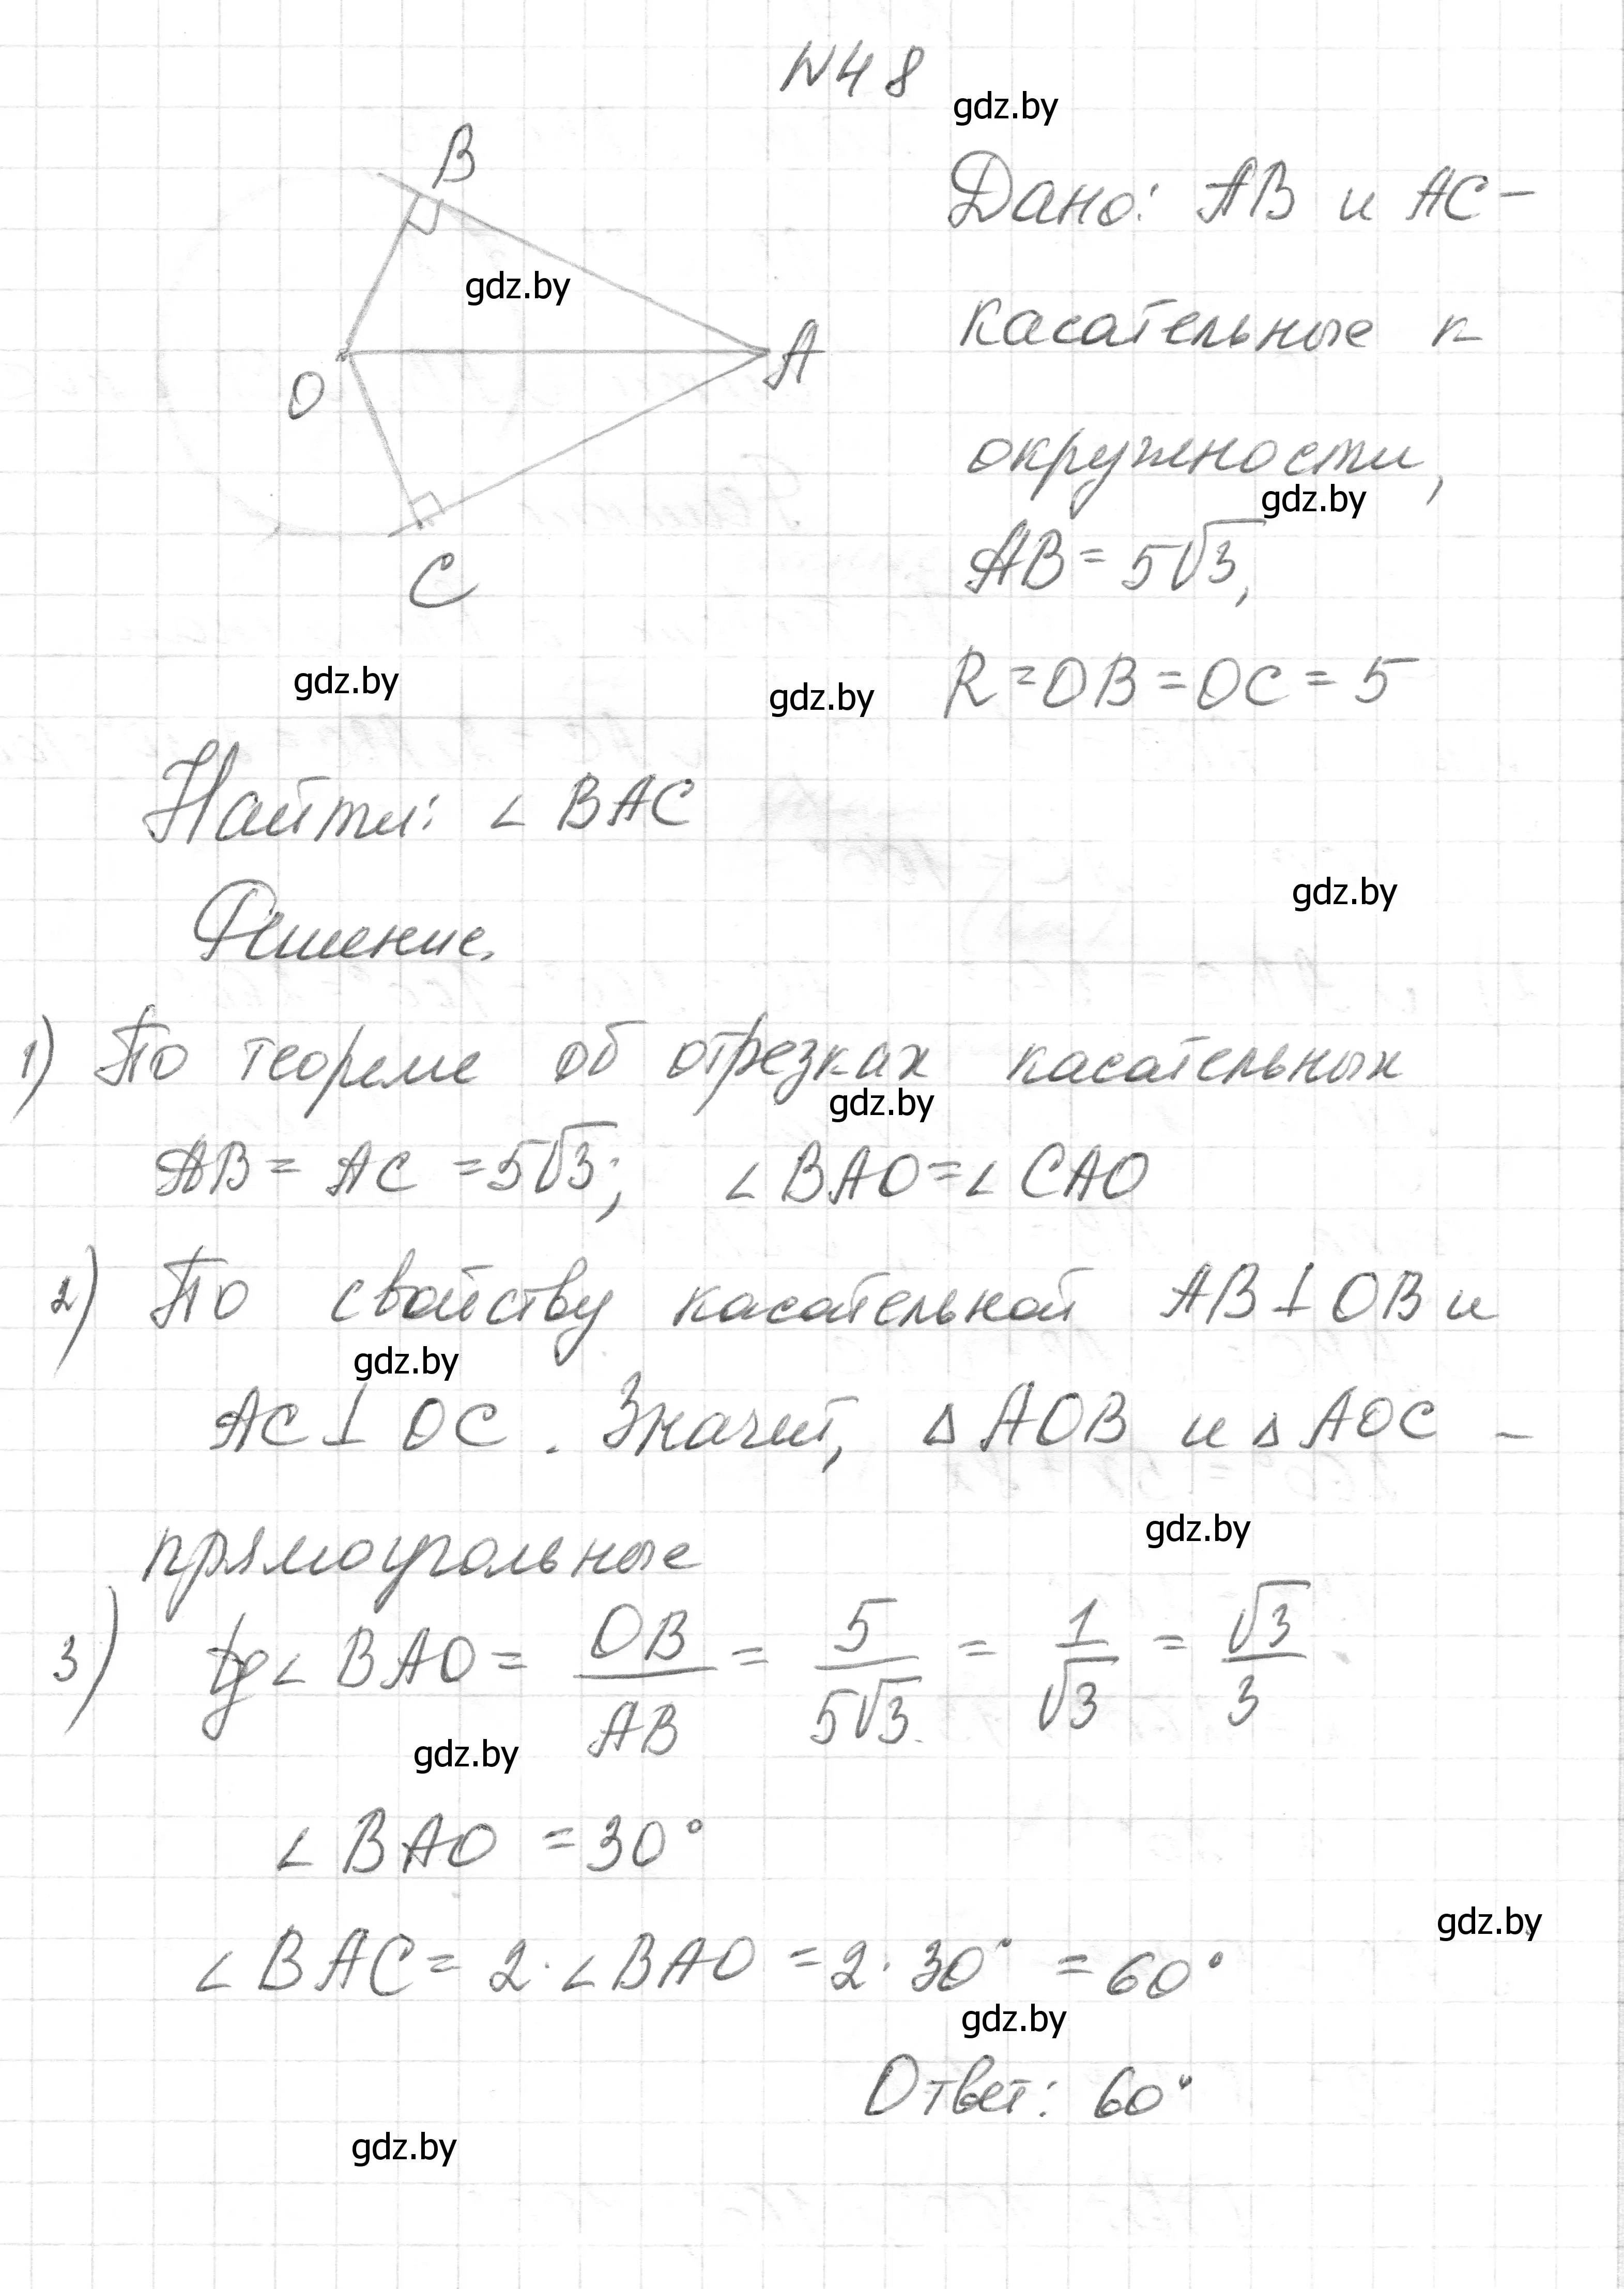 N48
gdz.by
B
Дано: AB и AC-
gdz.by
касательные к
A
O
окружности,
gdz.by
AB = 5√3,
C
gdz.by
gdz.by
R = OB = OC = 5
Найти: ∠ BAC
gdz.by
Решение.
1) По теореме об отрезках касательных
gdz.by
AB = AC = 5√3; ∠ BAO = ∠ CAO
2) По свойству касательной AB ⊥ OB и
gdz.by
AC ⊥ OC. Значит, △ AOB и △ AOC -
gdz.by
прямоугольные
3) tg ∠ BAO = OB/AB = 5/5√3 = 1/√3 = √3/3
gdz.by
∠ BAO = 30°
gdz.by
∠ BAC = 2 · ∠ BAO = 2 · 30° = 60°
gdz.by
Ответ: 60°
gdz.by